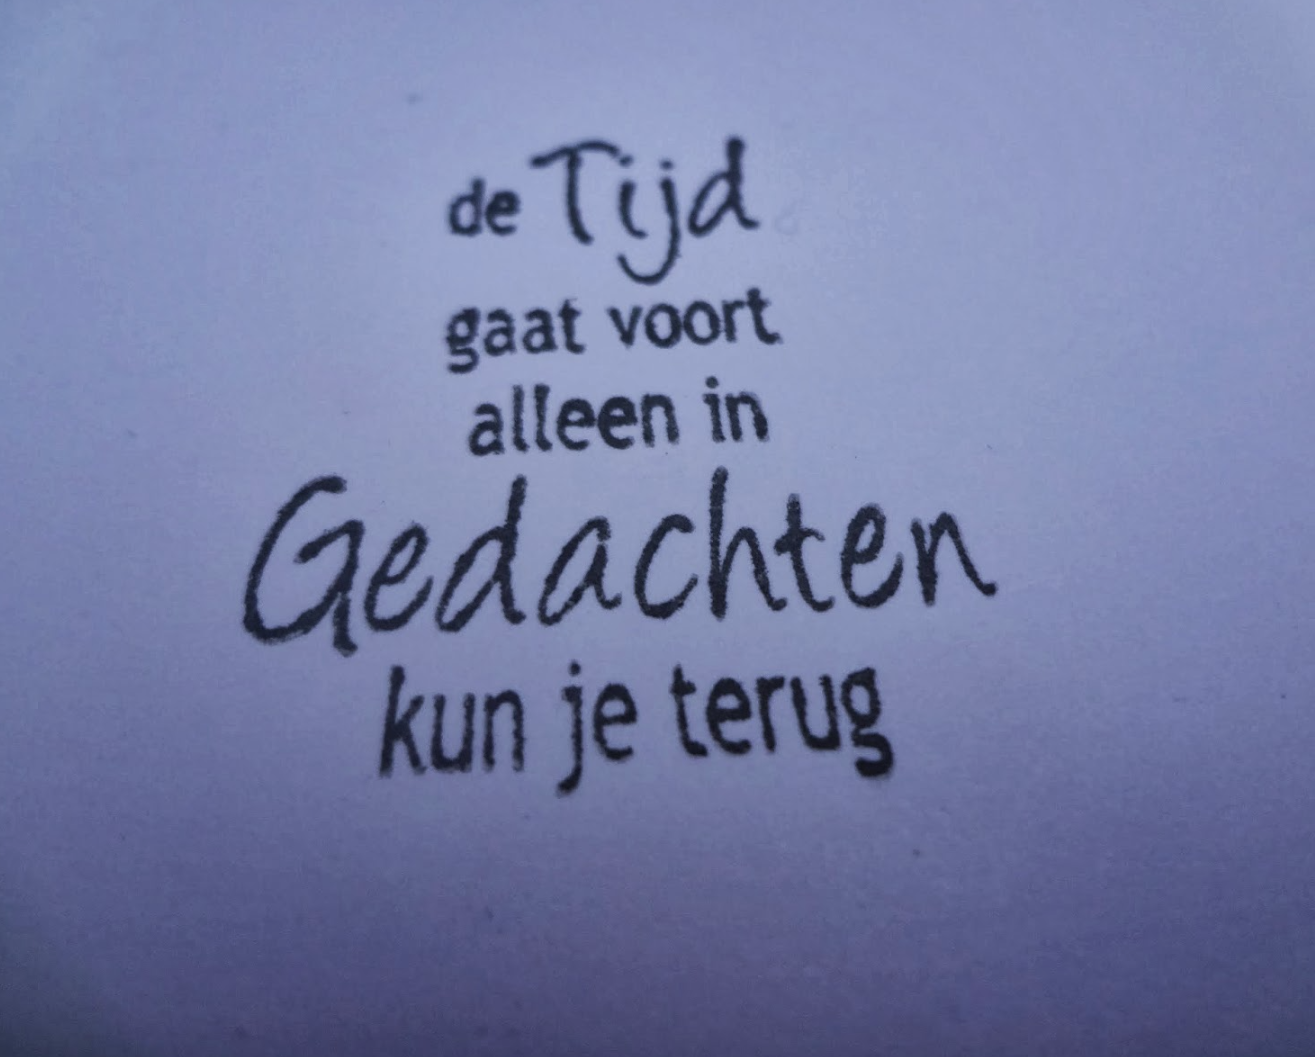 de Tijd
gaat voort
alleen in
Gedachten
kun je terug